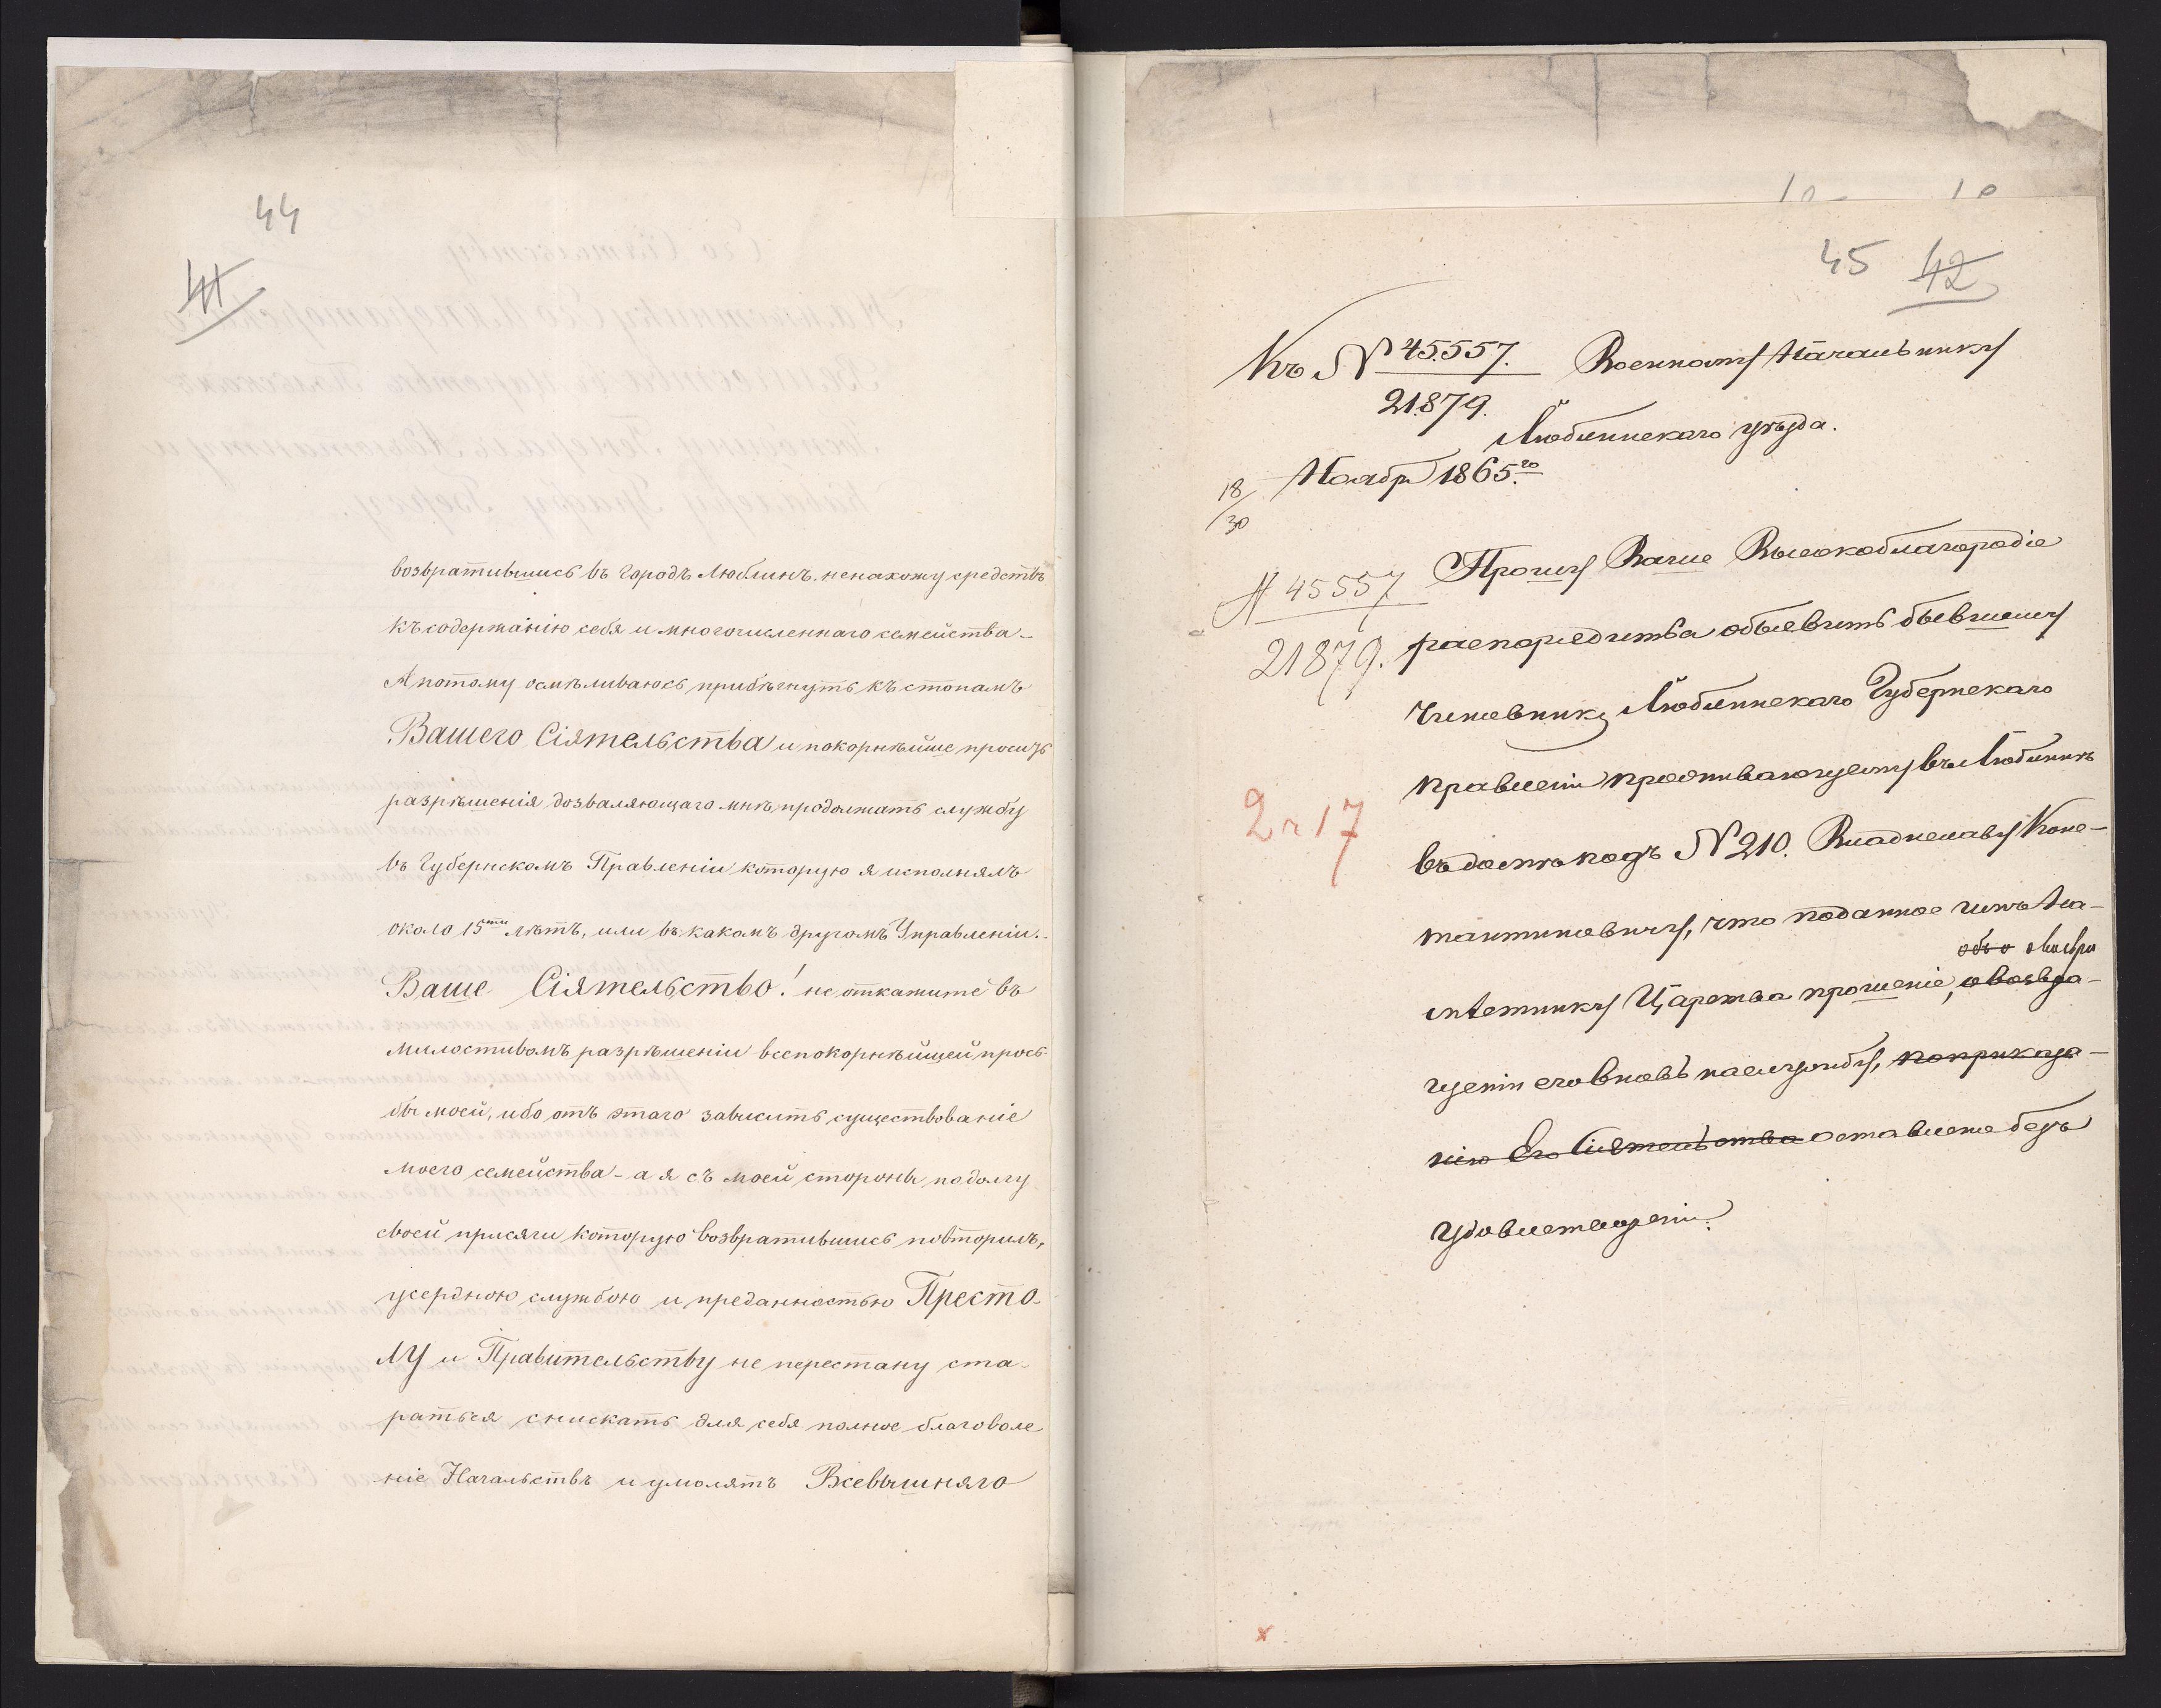 44
41
возвратившись въ городъ Люблинъ, ненахожу средствъ
къ содержанію себя и многочисленнаго семейства_
А потому осмѣливаюсь прибѣгнуть къ стопамъ
Вашего Сіятельства и покорнѣйше просить
разрѣшенія дозваляющаго мнѣ продолжать службу
въ Губернскомъ Правленіи которую я исполнялъ
около 15ти лѣтъ, или въ какомъ другомъ Управленіи._
Ваше Сіятельство! не откажите въ
милостивомъ разрѣшеніи всепокорнѣйшей прозь-
бы моей, ибо отъ этаго зависитъ существованіе
моего семейства - а я съ моей стороны по долгу
своей присяги которую возвратившись повторилъ,
усердною службою и преданностью Престо-
лу и Правительству не перестану ста-
раться снискать для себя полное благоволе
ніе Начальствъ и умолять Всевышняго
45 42
Къ № 45.557. Военному Начальнику
21.879.
Люблинскаго уѣзда.
18/30 Ноября 1865.го
Прошу Ваше Высокоблагородіе
№ 45557
21879.
распорядиться объявить бывшему
чиновнику Люблинскаго Губернскаго
правленія проживающему въ Люблинѣ
2 г 17
въ домѣ подъ № 210. Владиславу Конс-
тантиновичу, что поданное имъ На-
мѣстнику Царства прошеніе, о возвра-
щеніи его вновь на службу, по приказа-
нію Его Сіятельства оставлено безъ
удовлетворенія.
х